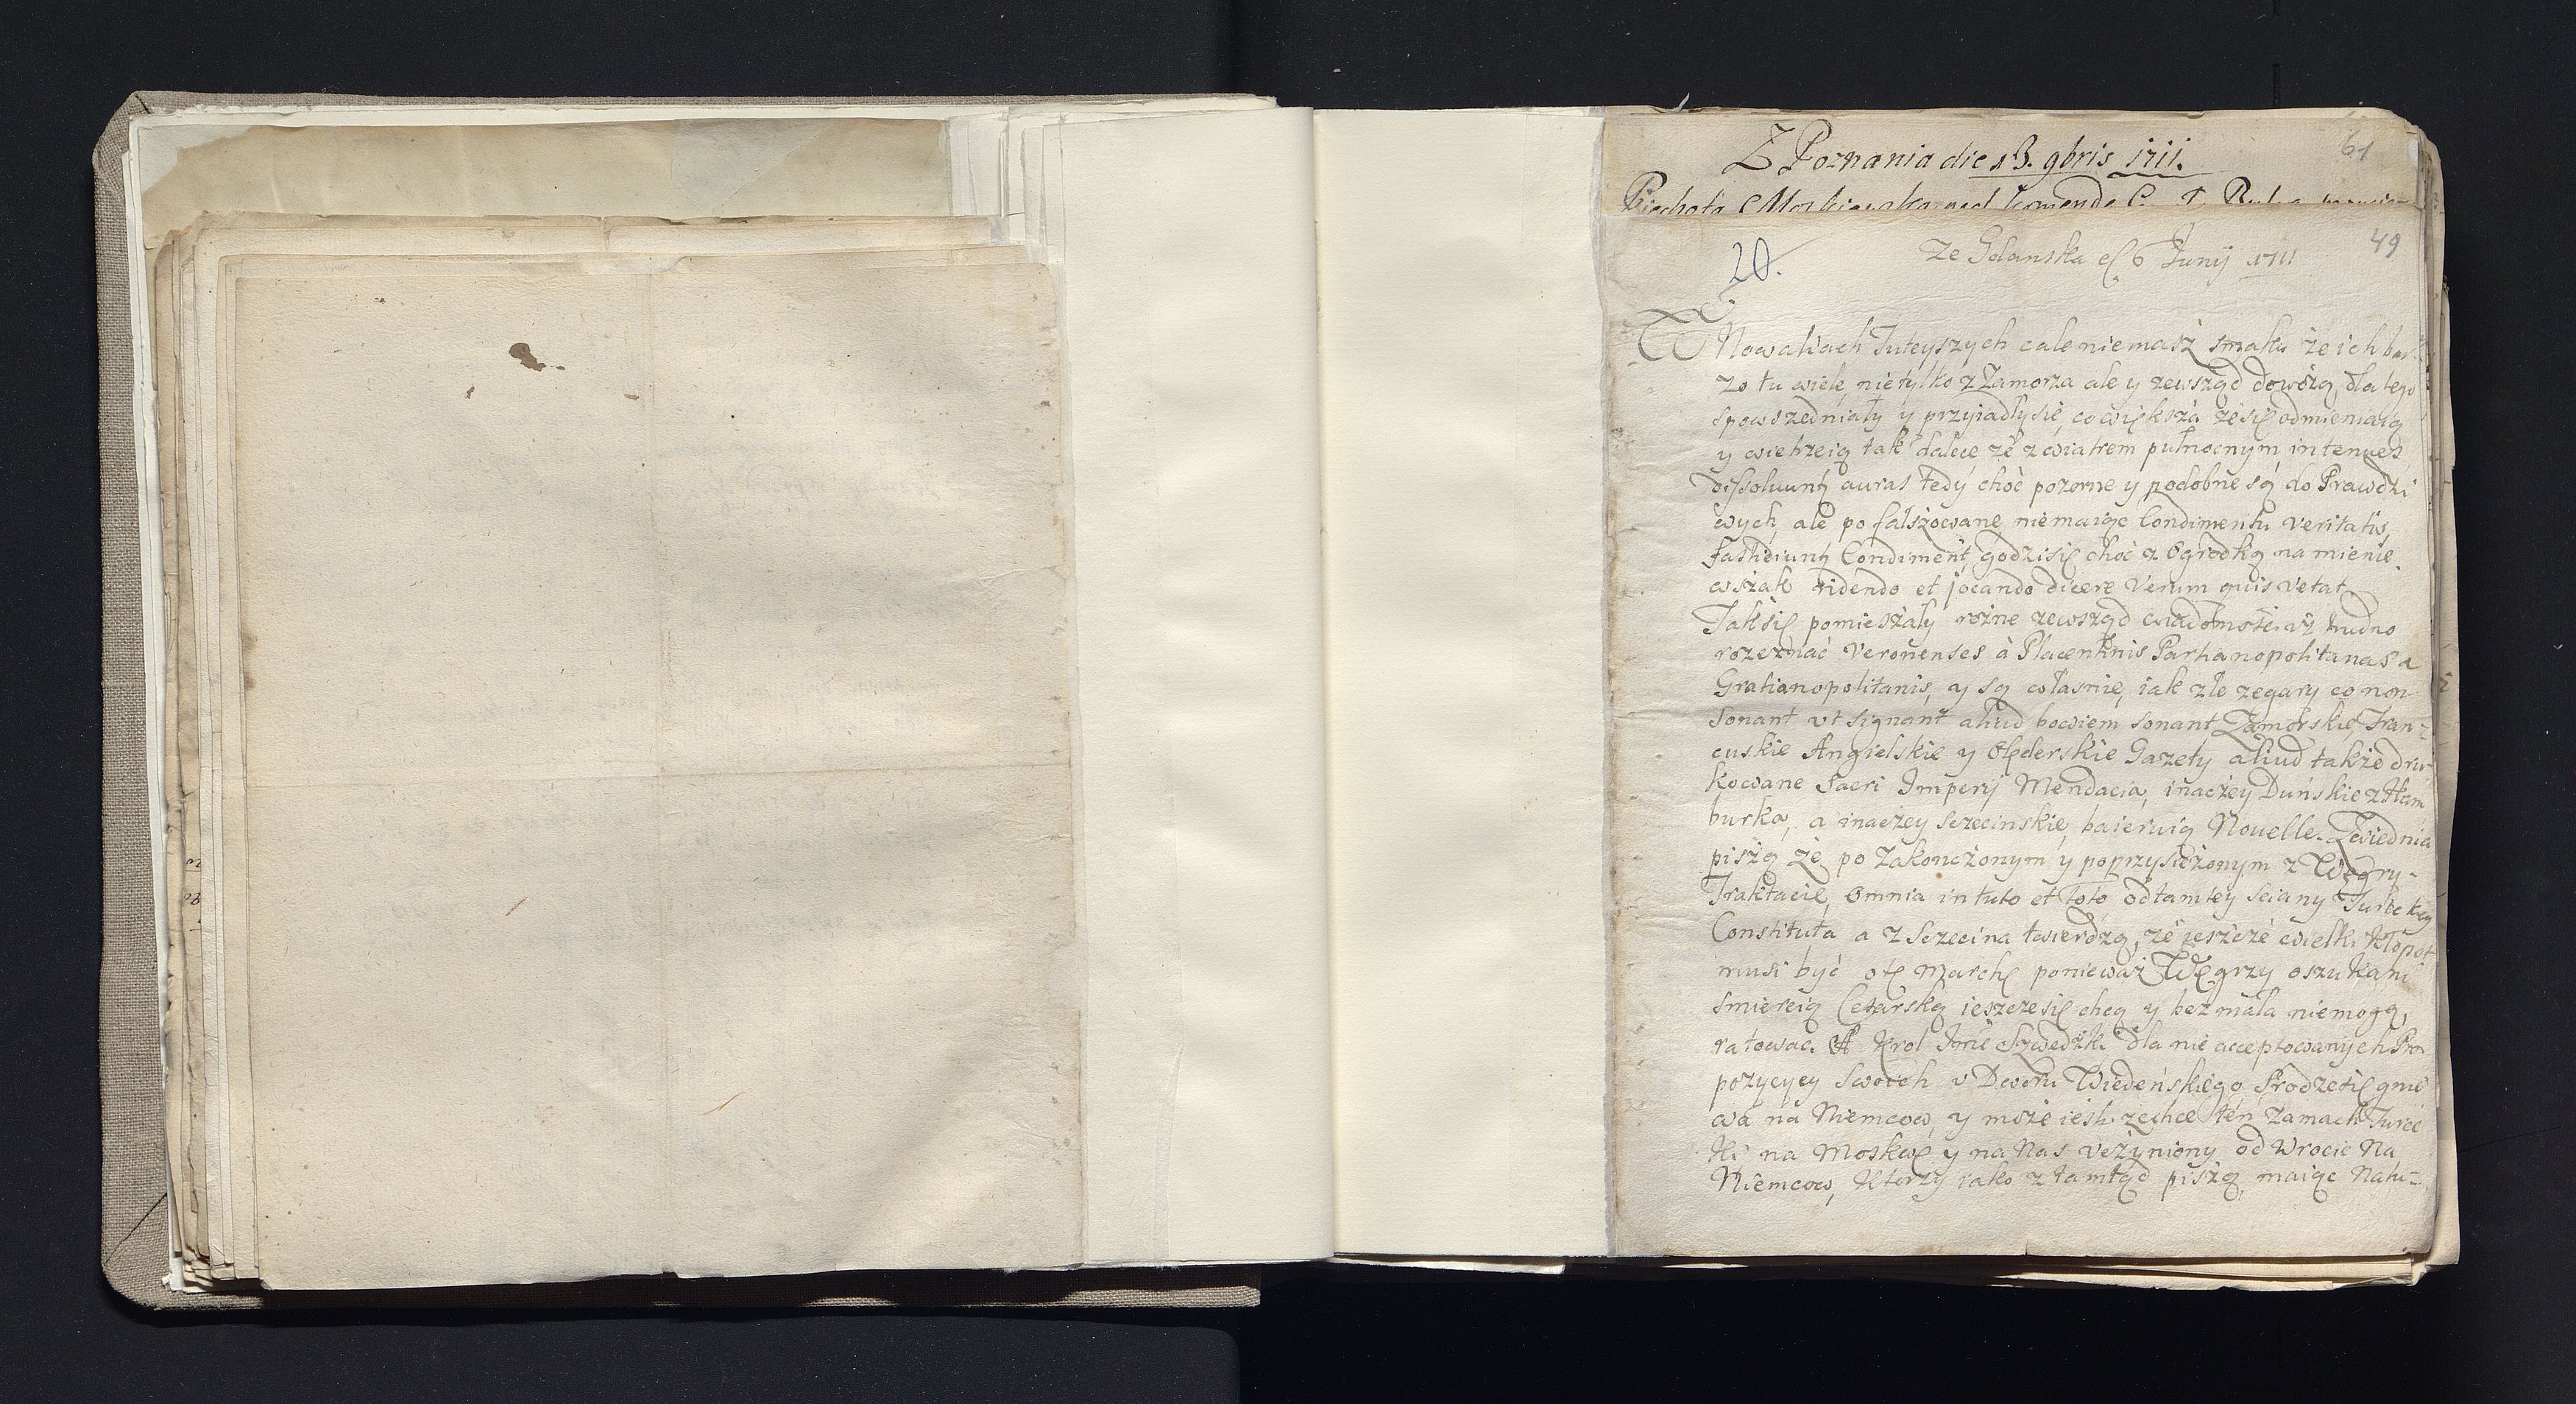 Z Poznania die 13. 9bris 1711.
61
Piechota Moskiewska pod komendą
Ze Gdanska d. 6 Junij 1711
49
20.
W Nowaliach Tuteyszych cale niemasz smaku że ich bar
zo tu wiele nietylko z Zamorza ale y zewsząd dowożą, dla tego
spowszedniały y przyiadły się, co większa że się odmieniaią
y wietrzeią tak dalece że z wiatrem pułnocnym in tenues
dissoluunt auras tedy choć pozorne y podobne są do Prawdzi
wych, ale po falszowane niemaiąc Condimentu veritatis,
fastidiunt Condiment, godzi się choć z Ogrodką na mienie.
wszak ridendo et jocando dicere Verum quis vetat
Tak się pomieszały rożne zewsząd wiadomości aż trudno
rozeznać Veronenses à Placentinis Parhanopolitanas a
Gratianopolitanis, y są własnie, iak złe zegary co non
sonant vt signant aliud bowiem sonant Zamorskie, Fran-
cuskie Angielskie y Olęderskie Gazety aliud także dru-
kowane Sacri Imperij Mendacia, inaczey Duńskie z Ham
burka, a inaczey sczecinskie, baieruią Nouelle. Z Wiednia
piszą że po Zakonczonym y poprzysiężonym z Węgry-
Traktacie, Omnia in tuto et Toto od tamtey sciany Tureckiey
Constituta a z Sczecina twierdzą, że jeszcze wielki kłopot
musi być o tę Marchę ponieważ Węgrzy oszukani
smiercią Cesarską ieszcze się chcą y bez mała niemogą,
ratować. A Krol Jmć Szwedzki dla nie acceptowanych Pro
pozycyey swoich v Dworu Wiedeńskiego srodze się gnie
wa na Niemcow, y może iesli zechce ten zamach Turec
ki na Moskwę y na Nas vczyniony od Wrocic Na
Niemcow, ktorzy iako z tamtąd piszą, maiąc Natu-